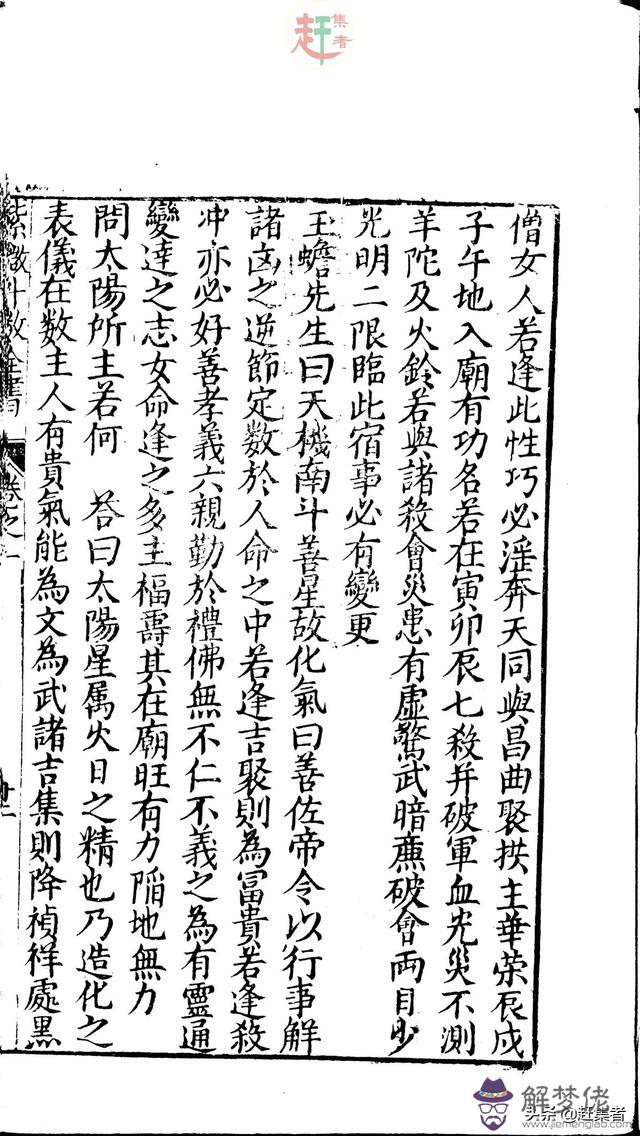 赶集者
僧女人若逢此性巧必淫奔天同與昌曲聚拱主華荣辰戍
子午地入廟有功名若在寅卯辰七殺并破軍血光災不測
羊陀及火鈴若與諸殺會災患有虛驚武暗廉破會両目少
光明二限臨此宿事必有變更
王蟾先生曰天機南斗善星故化氣曰善佐帝令以行事解
諸凶之逆節定数於人命之中若逢吉聚則為冨貴若逢殺
冲亦必好善孝義六親勤於禮佛無不仁不義之為有靈通
變達之志女命逢之多主福壽其在廟旺有力陷地無力
問太陽所主若何　荅曰太陽星属火日之精也乃造化之
表儀在数主人有貴氣能為文為武諸吉集則降禎祥處黑
紫微斗数全書 卷之一
解梦佬
头条@赶集者
www.jiemenglao.com